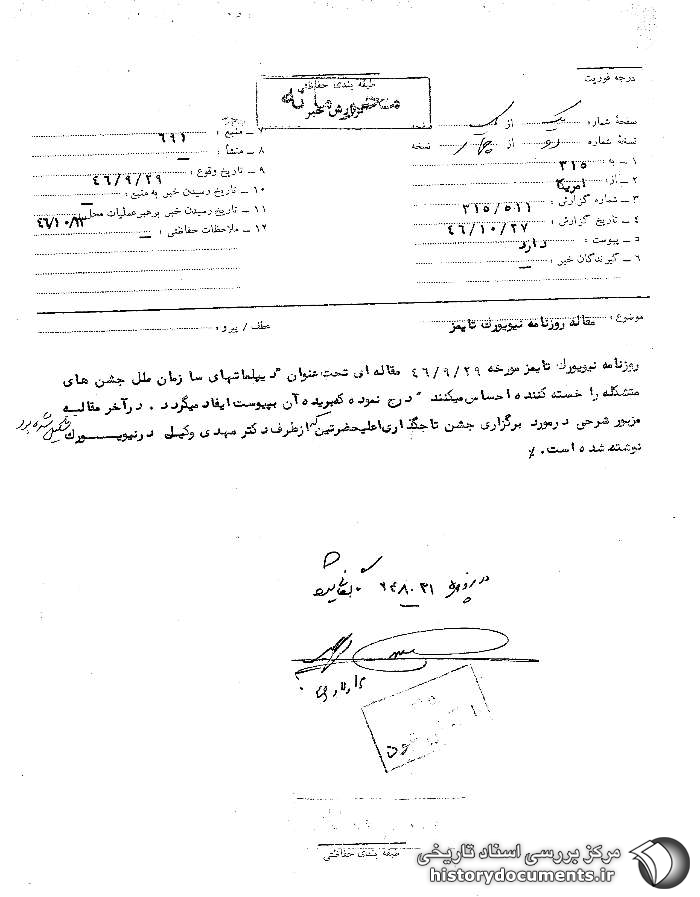 درجه فوریت
طبقه بندی حفاظتی
گزارش خبر
صفحهٔ شماره : یک از یک صفحه
نسخهٔ شماره دو از چهار نسخه
۱ ــ به : ۳۱۵
۲ ــ از : امریکا
۳ ــ شماره گزارش : ۳۱۵/۵۱۱
۴ ــ تاریخ گزارش : ۴۶/۱۰/۲۷
۵ ــ پیوست : دارد
۶ ــ گیرندگان خبر : ــ
۷ ــ منبع : ۶۹۱
۸ ــ منشأ : ــ
۹ ــ تاریخ وقوع : ۴۶/۹/۲۹
۱۰ ــ تاریخ رسیدن خبر به منبع :
۱۱ ــ تاریخ رسیدن خبر برهبر عملیات محلی
۱۲ ــ ملاحظات حفاظتی : ــ
موضوع : مقاله روزنامه نیویورک تایمز
عطف / پیرو :
روزنامه نیویورک تایمز مورخه ۴۶/۹/۲۹ مقاله ای تحت عنوان " دیپلماتهای سازمان ملل جشن های
متشکله را خسته کننده احساس میکنند " درج نموده که بریده آن بپیوست ایفاد میگردد . در آخر مقاله
مزبور شرحی در مورد برگزاری جشن تاجگذاری اعلیحضرتین که از طرف دکتر مهدی وکیل در نیویورک تشکیل شده بود
نوشته شده است . ٪
طبقه بندی حفاظتی
مرکز بررسی اسناد تاریخی
historydocuments.ir